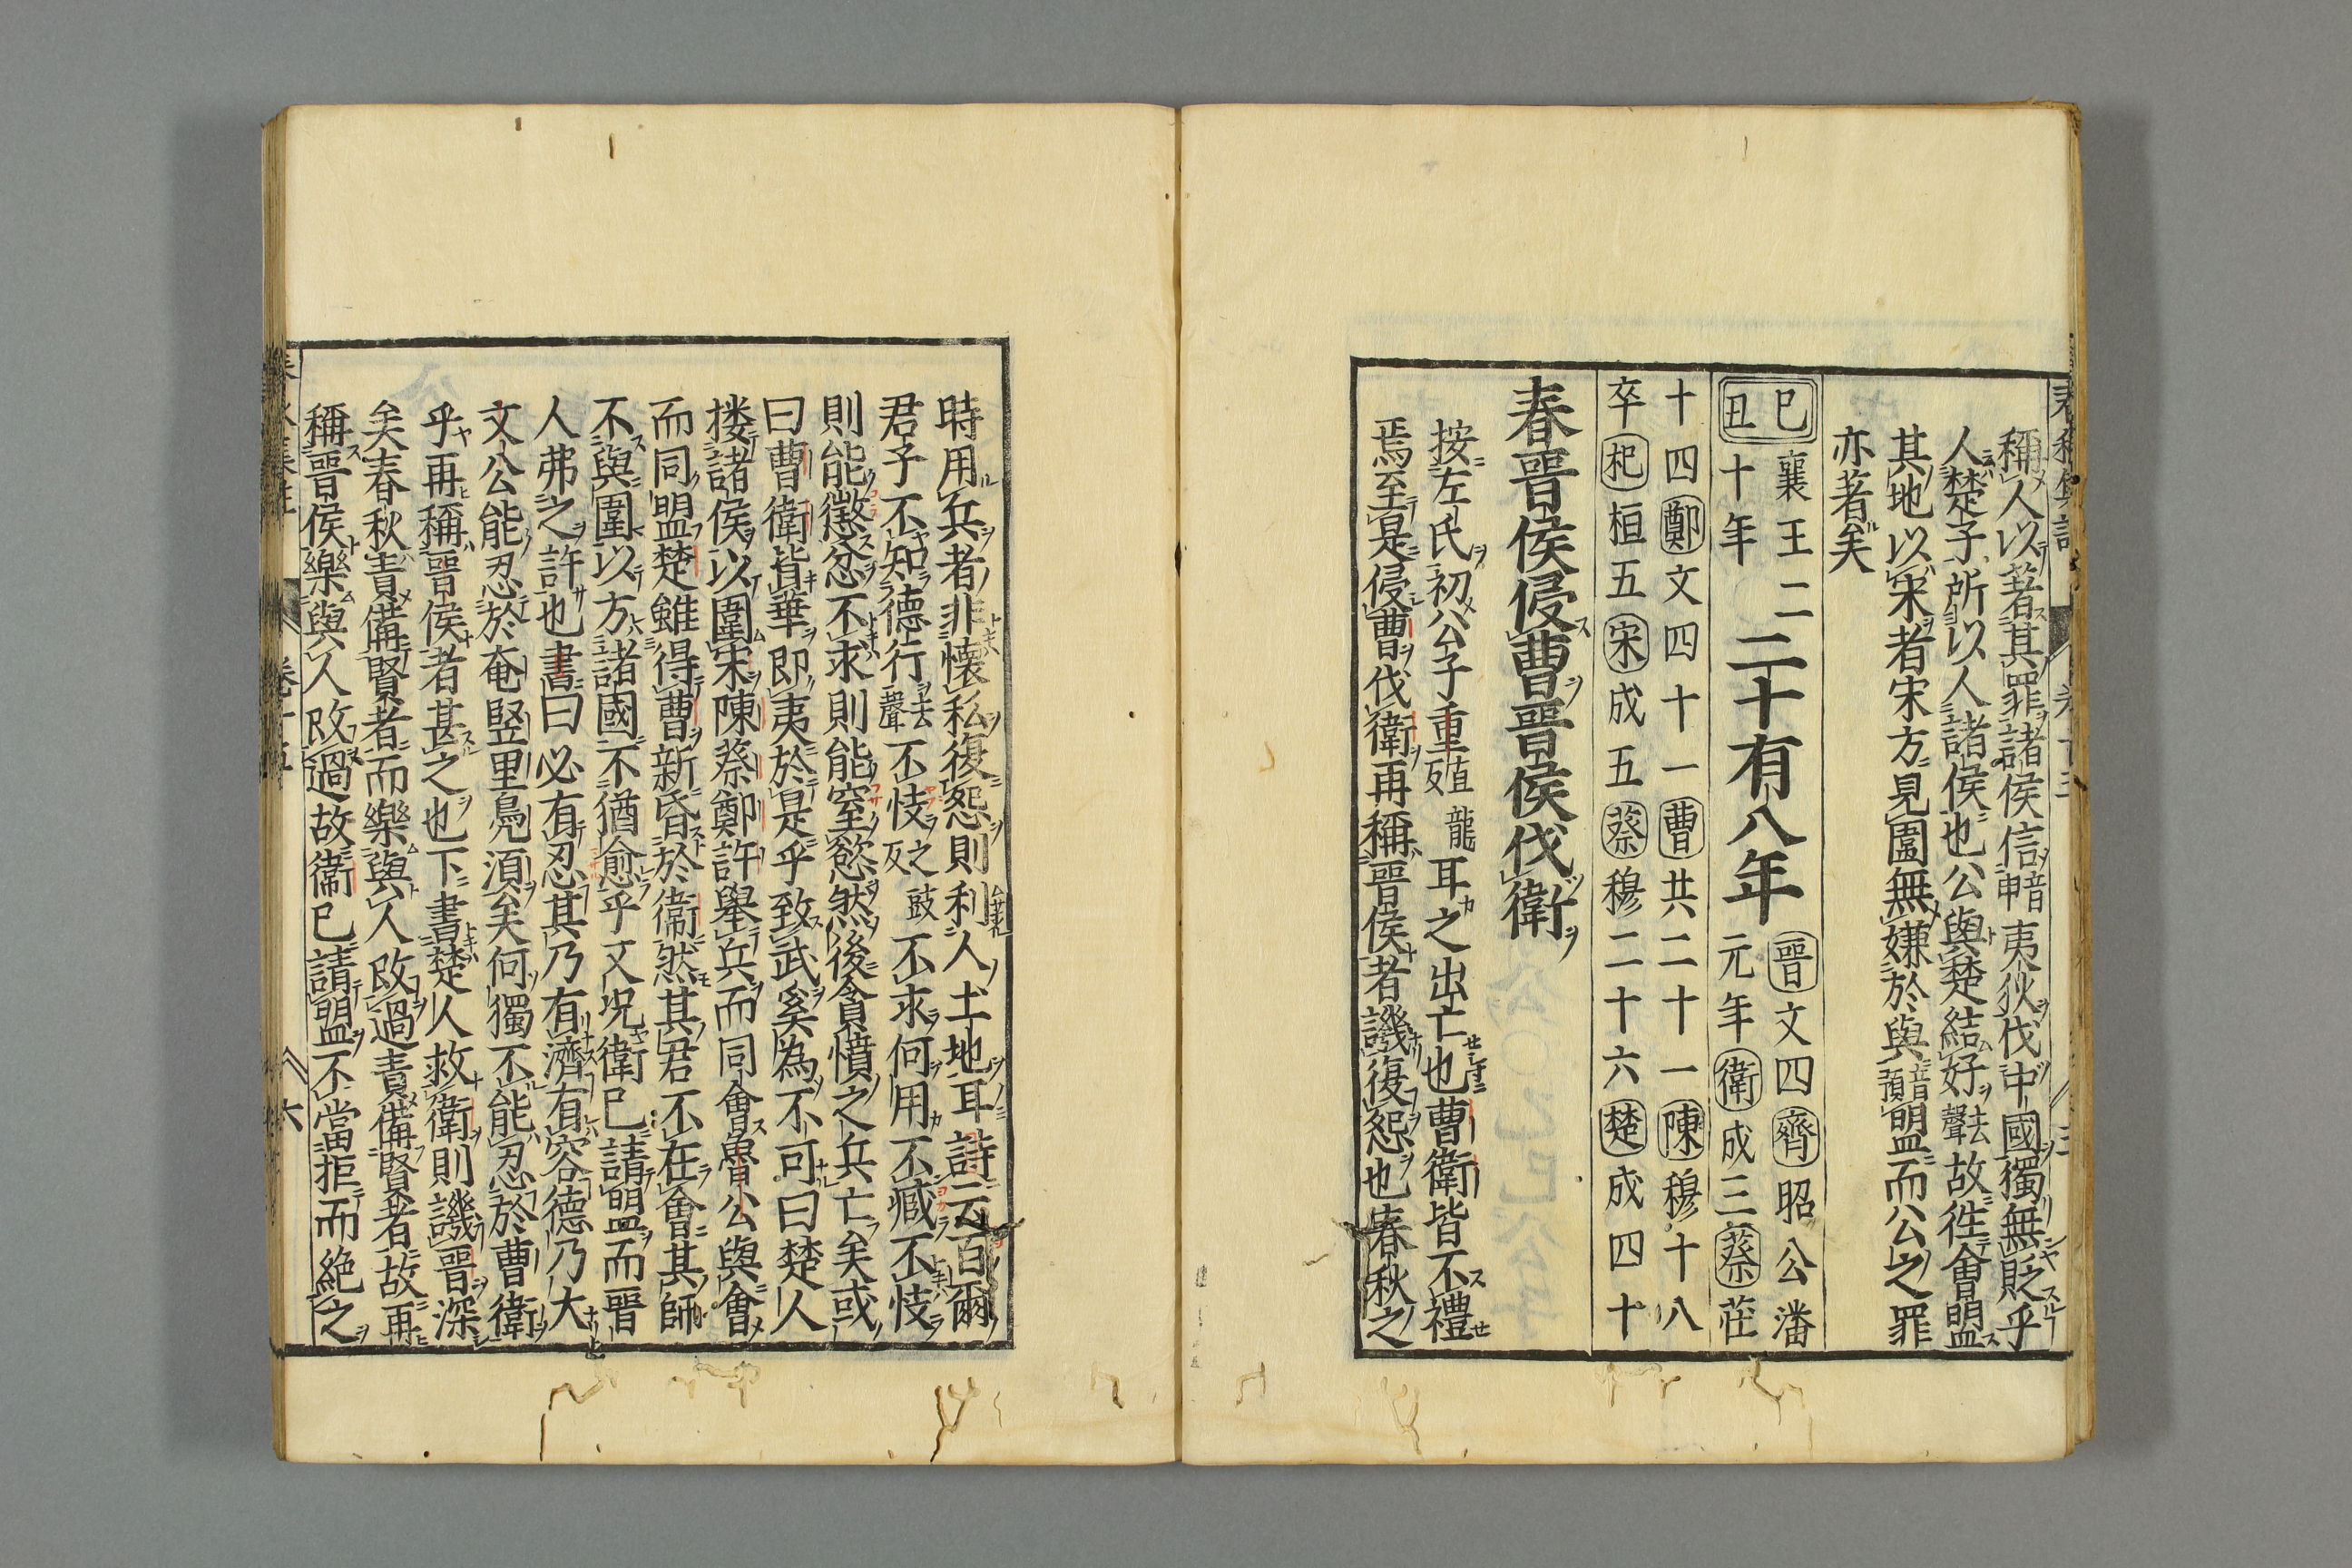 稱人以著其罪諸侯信音申夷狄伐中國獨無貶乎
人楚子所以人諸侯也公與楚結好去聲故徃會盟
其地以宋者宋方見圍無嫌於與音預盟而公之罪
亦著矣
己丑襄王二十年
二十有八年
晉文四齊昭公潘元年衛成三蔡莊
十四鄭文四十一曹共二十一陳穆十八
卒杞桓五宋成五蔡穆二十六楚成四十
春晉侯侵曹晉侯伐衛
按左氏初公子重直龍反耳之出亡也曹衛皆不禮
焉至是侵曹伐衛再稱晉侯者譏復怨也春秋之
時用兵者非懷私復怨則利人土地耳詩云百爾
君子不知德行去聲不忮之豉反不求何用不臧不忮
則能懲忿不求則能窒慾然後貪憤之兵亡矣或
曰曹衛背華即夷於是乎致武奚為不可曰楚人
摟諸侯以圍宋陳蔡鄭許舉兵而同會魯公與會
而同盟楚雖得曹新昏於衛然其君不在會其師
不與圍以方諸國不猶愈乎又況衛已請盟而晉
人弗之許也書曰必有忍其乃有濟有容德乃大
文公能忍於奄竪里鳧湏矣何獨不能忍於曹衛
乎再稱晉侯者甚之也下書楚人救衛則譏晉深
矣春秋責備賢者而樂與人改過責備賢者故再
稱晉侯樂與人改過故衛已請盟不當拒而絶之
卷十五
六